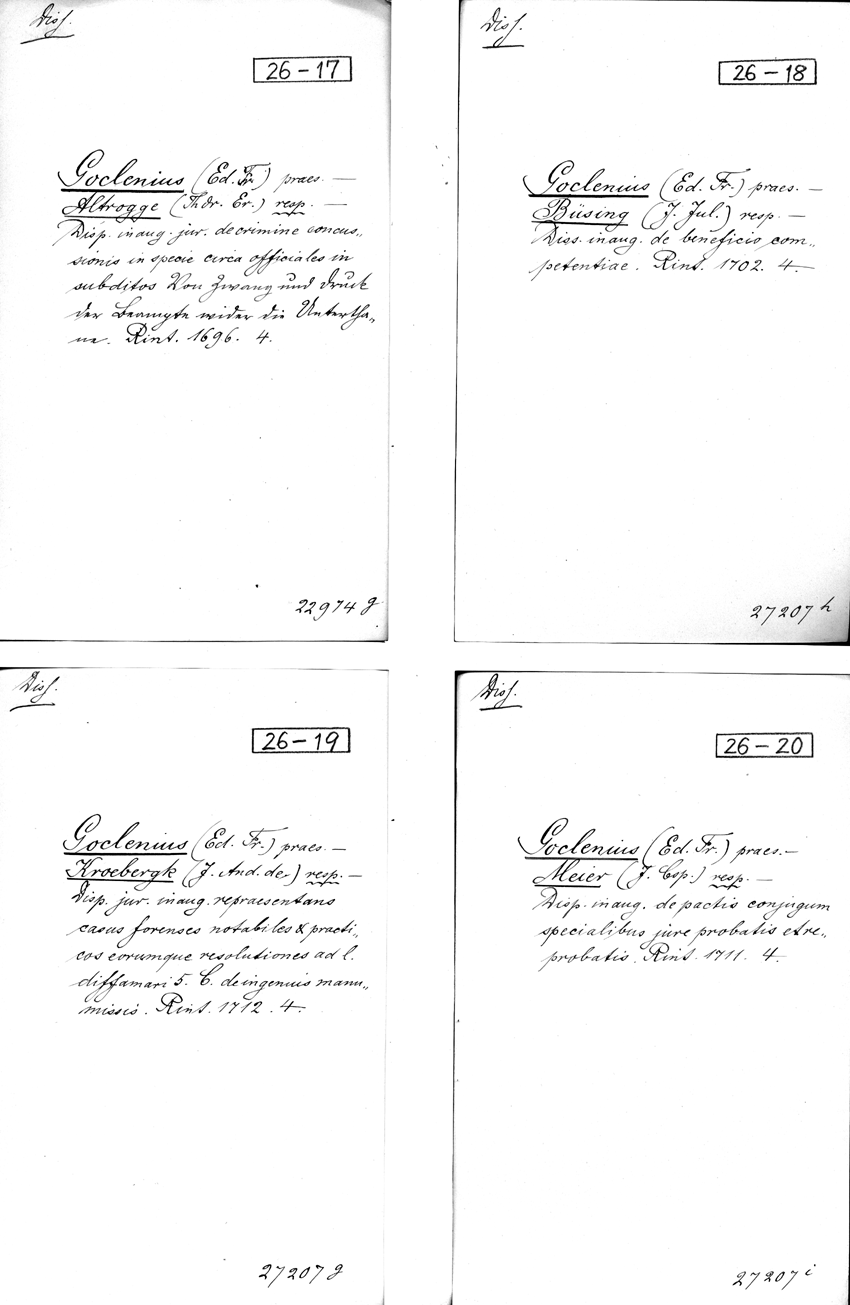 Diss.
26-17
Goclenius (Ed. Fr.) praes. —
Altrogge (Thdr. Er.) resp. —
Disp. inaug. jur. de crimine concus„
sionis in specie circa officiales in
subditos Von Zwang und Druck
der Beampte wider die Untertha„
ne. Rint. 1696. 4.
22974 g
Diss.
26-18
Goclenius (Ed. Fr.) praes. —
Büsing (J. Jul.) resp. —
Diss. inaug. de beneficio com„
petentiae. Rint. 1702. 4.
27207 h
Diss.
26-19
Goclenius (Ed. Fr.) praes. —
Kroebergk (J. And. de) resp. —
Disp. jur. inaug. repraesentans
casus forenses notabiles & practi„
cos eorumque resolutiones ad l.
diffamari 5. C. de ingenuis manu„
missis. Rint. 1712. 4.
27207 g
Diss.
26-20
Goclenius (Ed. Fr.) praes. —
Meier (J. Csp.) resp. —
Disp. inaug. de pactis conjugum
specialibus jure probatis et re„
probatis. Rint. 1711. 4.
27207 i